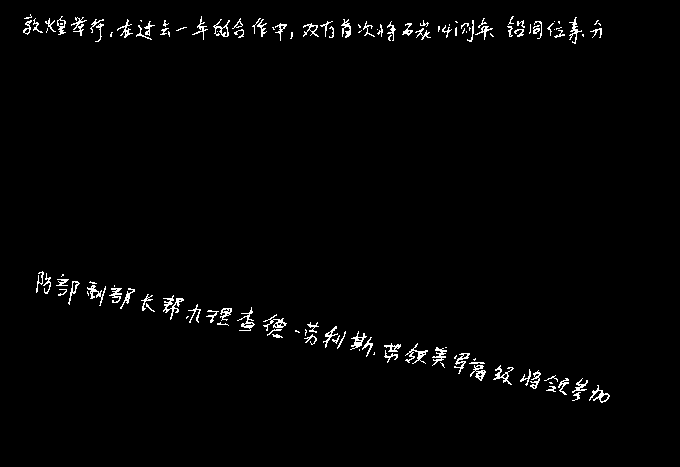 敦煌举行,在过去一年的合作中,双方首次将碳14测年 铅同位素分
防部副部长帮办理查德-劳利斯,带领美军高级将领参加